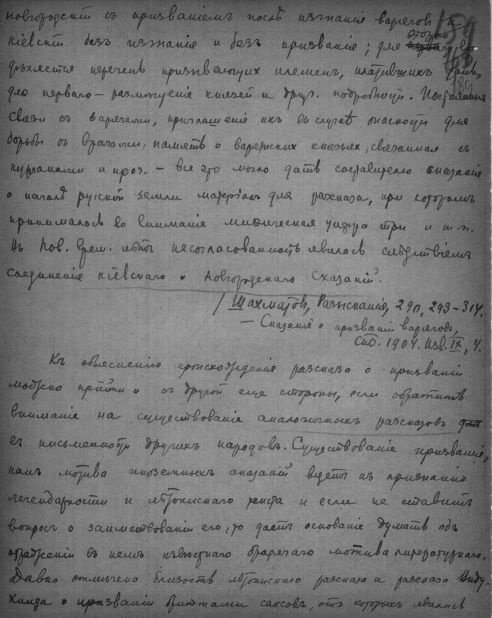 новгородскiй съ призванiемъ послѣ изгнанiя варяговъ и
кiевскiй безъ изгнанiя и безъ призванiя; для второго
перечень призывающихъ племенъ, платившихъ дань,
для перваго – размѣщенiе князей и друг. подробности.
связи съ варягами, приглашенiе ихъ въ случаѣ опасности для
борьбы съ врагами, память о варяжскихъ князьяхъ, связанная съ
курганами и проч. – все это могло дать составителю сказанiя
о началѣ русской земли матерiалъ для разсказа, при которомъ
принималось во вниманiе мифическая цифра три и т. п.
Въ Пов. врем. лѣтъ несогласованность явилась слѣдствiемъ
соединенiя кiевскаго и новгородскаго сказанiй.
/ Шахматовъ, Разысканiя, 290, 293–314.
– Сказанiе о призванiи варяговъ,
СПб. 1904. Изв. IX, 4.
Къ объясненiю происхожденiя разсказа о призванiи
можно прiйти и съ другой еще стороны, если обратить
вниманiе на существованiе аналогичныхъ разсказовъ
въ письменности другихъ народовъ. Существованiе призванiя,
какъ мотива иноземныхъ сказанiй ведетъ къ признанiю
легендарности и лѣтописнаго текста и если не ставитъ
вопросъ о заимствованiи его, то даетъ основанiе думать объ
отраженiи въ немъ извѣстнаго бродячаго мотива литературнаго.
Давно отмѣчена близость лѣтописнаго разсказа и разсказа Виду-
кинда о призванiи бриттами саксовъ, отъ которыхъ явились